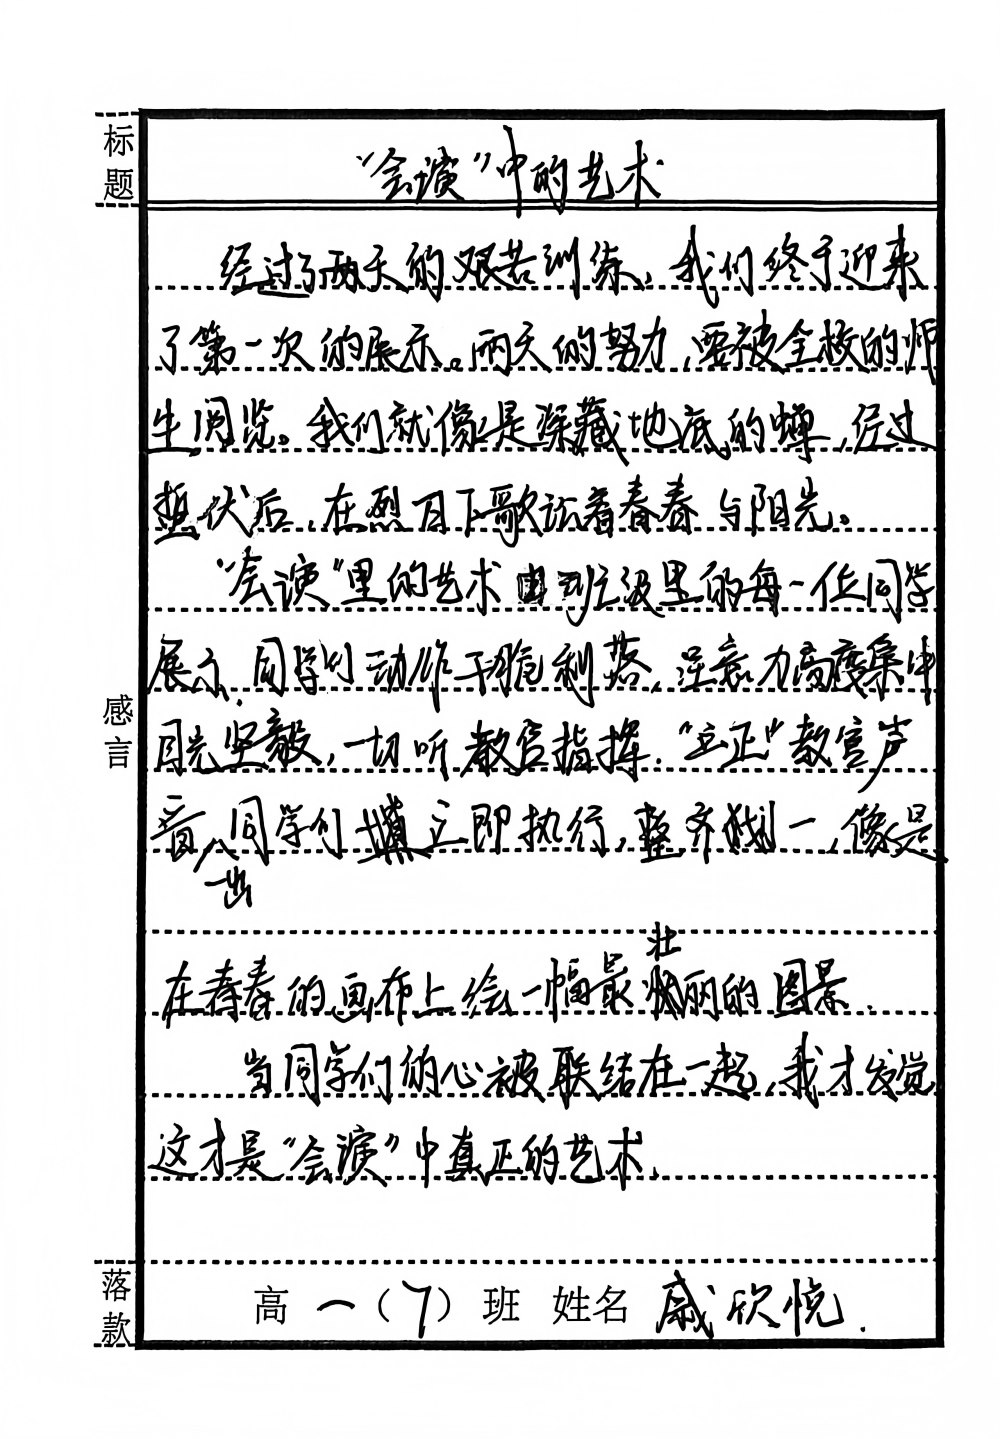 标题
“会演”中的艺术
经过了两天的艰苦训练，我们终于迎来
了第一次的展示。两天的努力，要被全校的师
生阅览。我们就像是深藏地底的蝉，经过
蛰伏后，在烈日下歌颂着青春与阳光。
“会演”里的艺术由班级里的每一位同学
展示，同学们动作干脆利落，注意力高度集中
目光坚毅，一切听教官指挥．“立正”教官声
音一出，同学们立即执行，整齐划一，像是
在青春的画布上绘一幅最壮丽的图景．
当同学们的心被联结在一起，我才发觉
这才是“会演”中真正的艺术．
感言
落款
高一（7）班 姓名 戚欣悦．